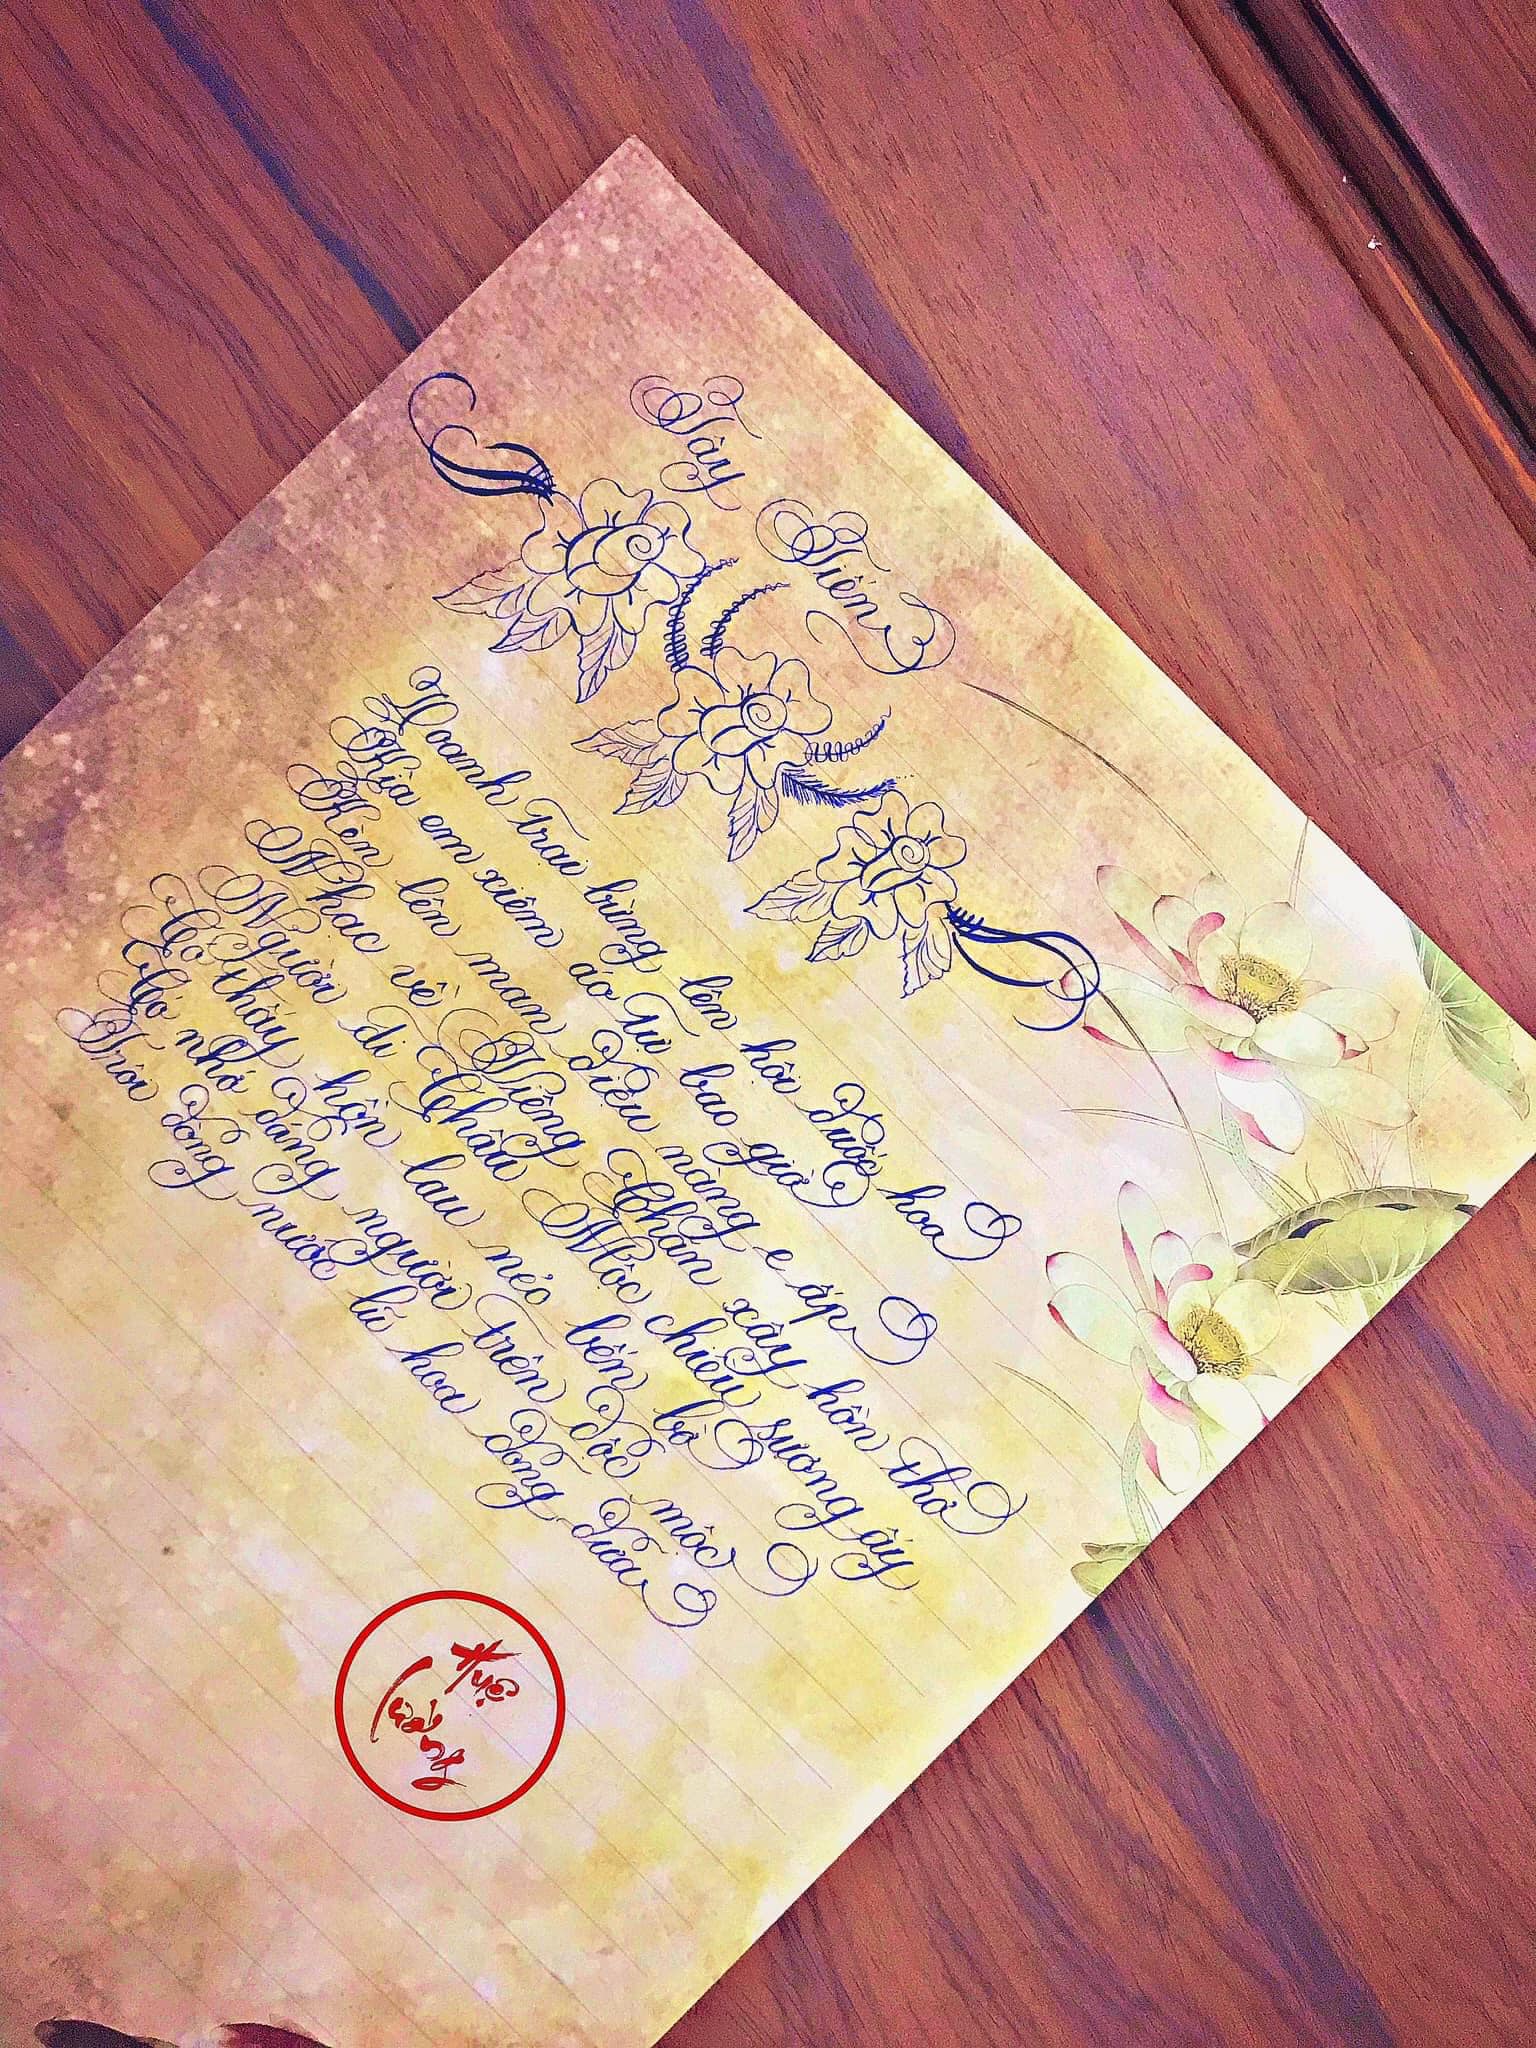 Tây Tiến
Hoanh Trại bừng lên hội đuốc hoa
Kìa em xiêm áo tự bao giờ
Kèn lên man điệu nàng e ấp
Nhạc về Viêng Chăn xây hồn thơ
Người đi Châu Mộc chiều sương ấy
Có thấy hồn lau nẻo bến bờ
Có nhớ dáng người trên độc mộc
Trôi dòng nước lũ hoa đong đưa
Huệ